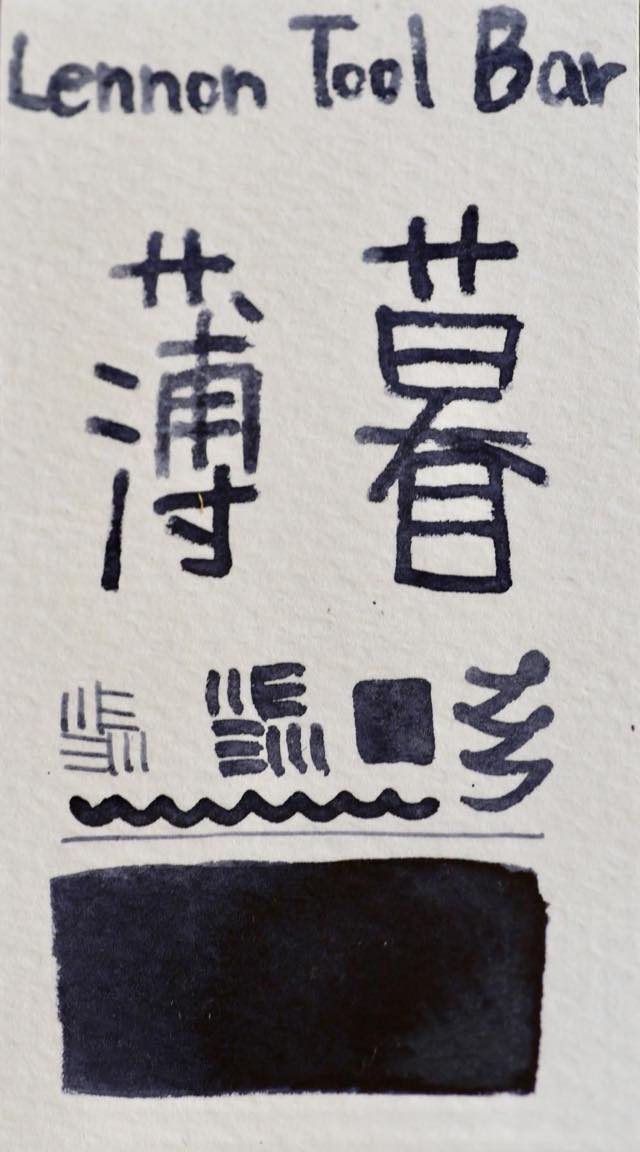 Lennon Tool Bar
薄暮